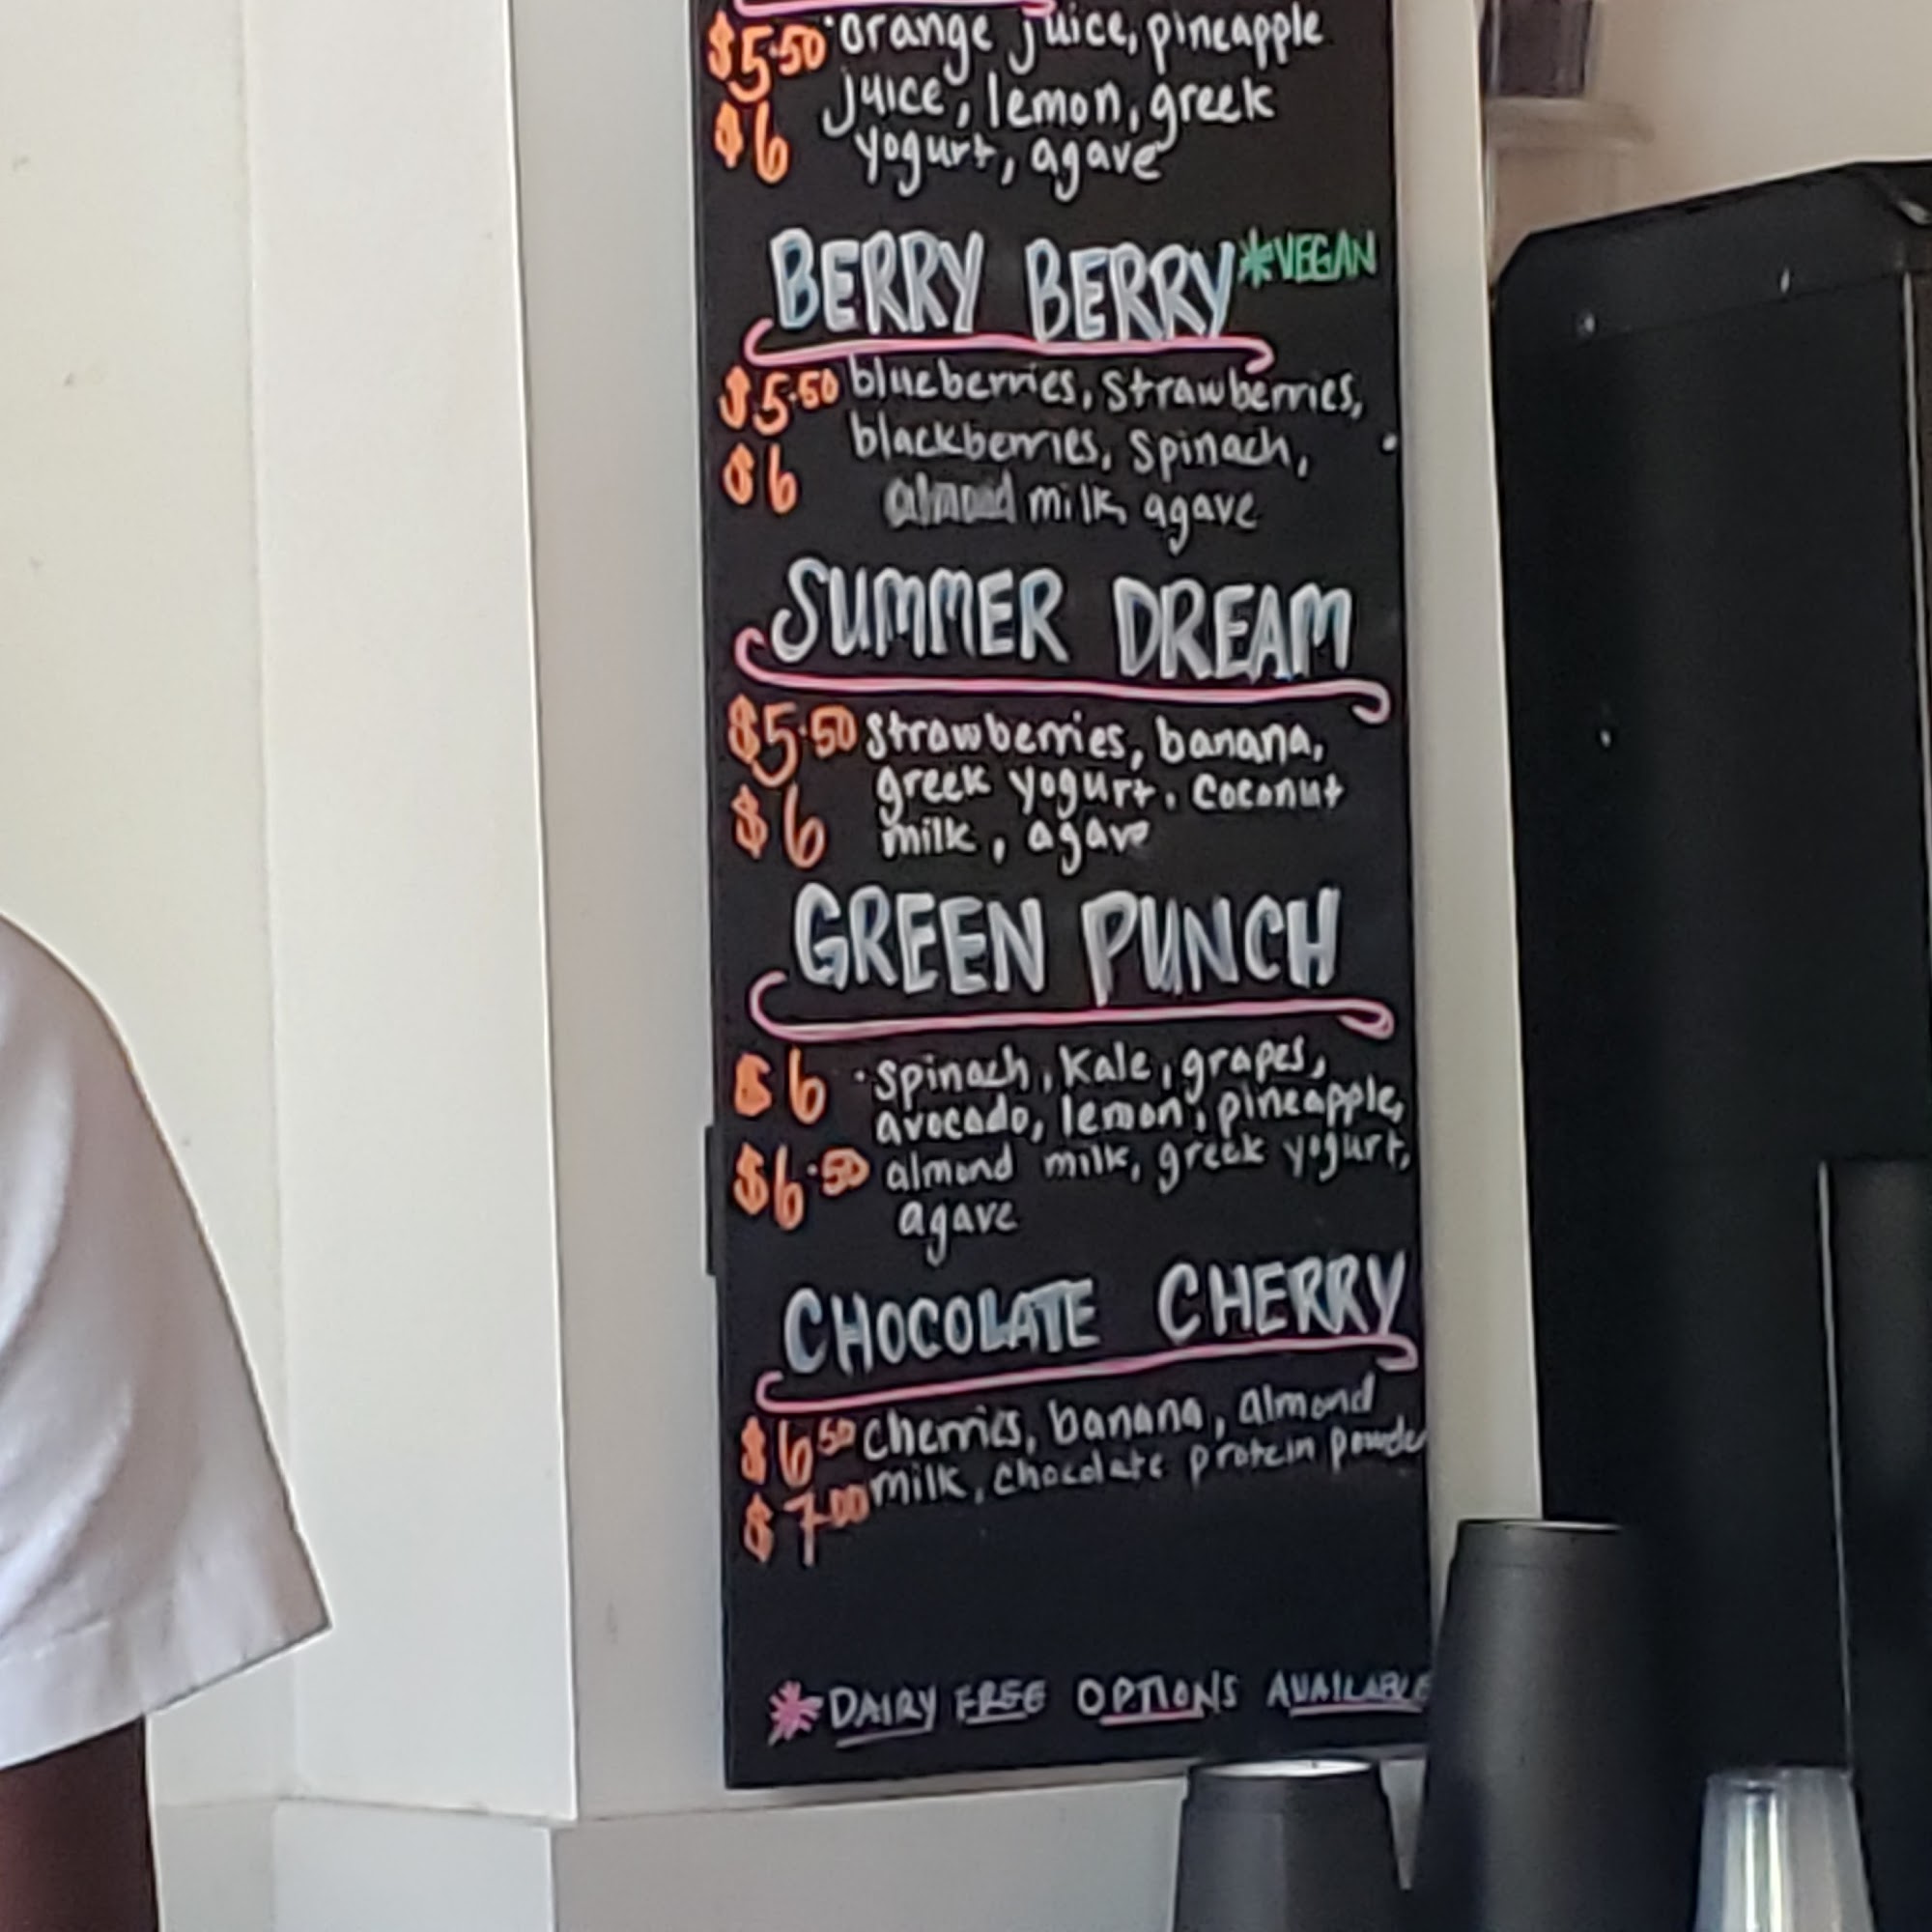 $5.50 · orange juice, pineapple
juice, lemon, greek
$6 yogurt, agave
BERRY BERRY *VEGAN
$5.50 blueberries, strawberries,
blackberries, spinach,
$6 almond milk, agave
SUMMER DREAM
$5.50 strawberries, banana,
greek yogurt, coconut
$6 milk, agave
GREEN PUNCH
$6 · spinach, kale, grapes,
avocado, lemon, pineapple,
$6.50 almond milk, greek yogurt,
agave
CHOCOLATE CHERRY
$6.50 cherries, banana, almond
milk, chocolate protein powder
$7.00
*DAIRY FREE OPTIONS AVAILABLE